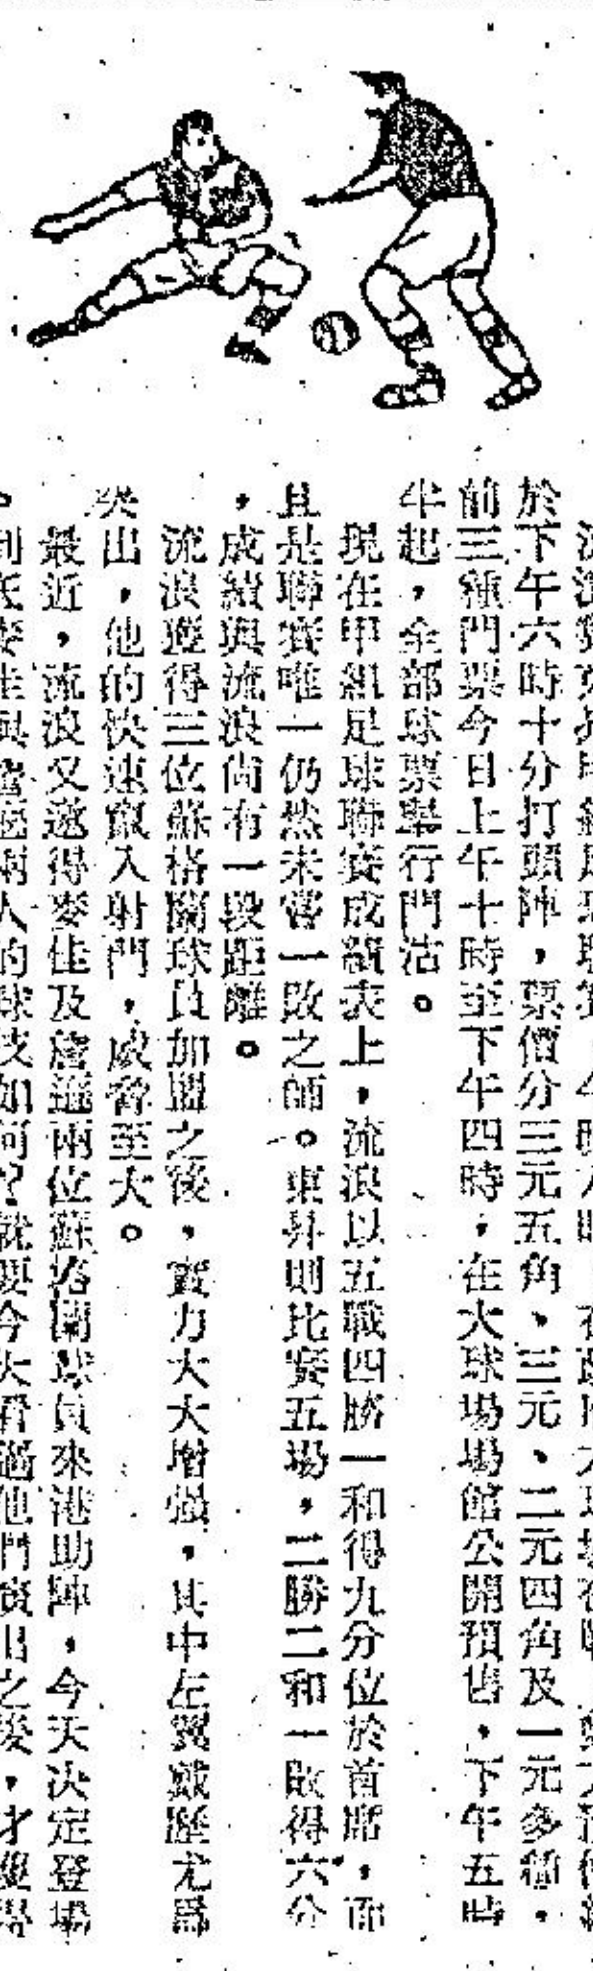 於下午六時十分打頭陣，票價分三元五角、三元、二元四角及一元多種，
前三種門票今日上午十時至下午四時，在大球場場館公開預售，下午五時
半起，全部球票舉行門沽。
現在甲組足球聯賽成績表上，流浪以五戰四勝一和得九分位於首席，而
且是聯賽唯一仍然未嘗一敗之師。東昇則比賽五場，二勝二和一敗得六分
，成績與流浪尚有一段距離。
流浪獲得三位蘇格蘭球員加盟之後，實力大大增強，其中左翼戴歷尤爲
突出，他的快速竄入射門，威脅至大。
最近，流浪又邀得麥佳及詹遜兩位蘇格蘭球員來港助陣，今天決定登場